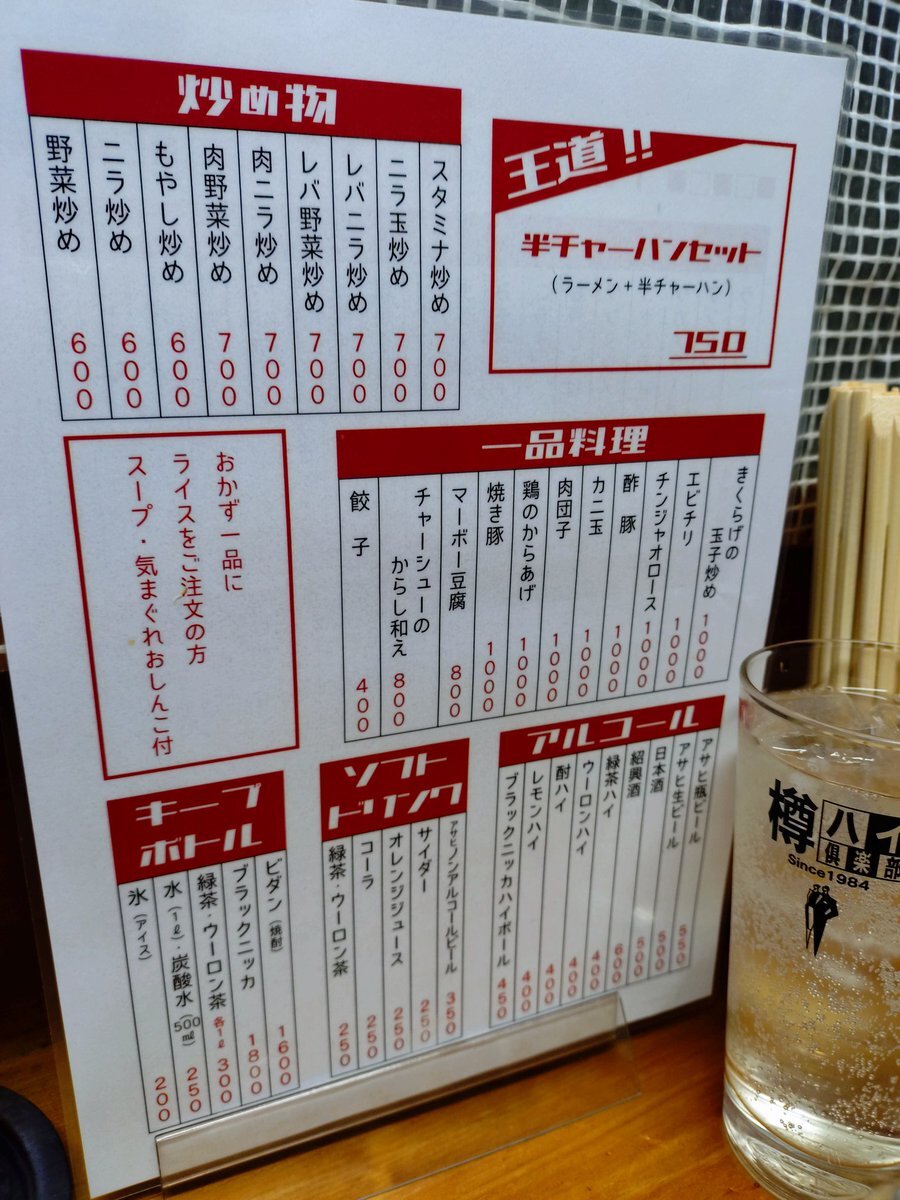 炒め物
スタミナ炒め 700
ニラ玉炒め 700
レバニラ炒め 700
レバ野菜炒め 700
肉ニラ炒め 700
肉野菜炒め 700
もやし炒め 600
ニラ炒め 600
野菜炒め 600
王道!!
半チャーハンセット
(ラーメン+半チャーハン)
750
おかず一品に
ライスをご注文の方
スープ・気まぐれおしんこ付
一品料理
きくらげの
玉子炒め 1000
エビチリ 1000
チンジャオロース 1000
酢豚 1000
カニ玉 1000
肉団子 1000
鶏のからあげ 1000
焼き豚 1000
マーボー豆腐 800
チャーシューの
からし和え 800
餃子 400
アルコール
アサヒ瓶ビール 550
アサヒ生ビール 500
日本酒 500
紹興酒 600
緑茶ハイ 400
ウーロンハイ 400
酎ハイ 400
レモンハイ 400
ブラックニッカハイボール 450
ソフト
ドリンク
アサヒノンアルコールビール 350
サイダー 250
オレンジジュース 250
コーラ 250
緑茶・ウーロン茶 250
キープ
ボトル
ビダン(焼酎) 1600
ブラックニッカ 1800
緑茶・ウーロン茶 各1ℓ 300
水(1ℓ)・炭酸水(500㎖) 250
氷(アイス) 200
樽ハイ
倶楽部
Since1984